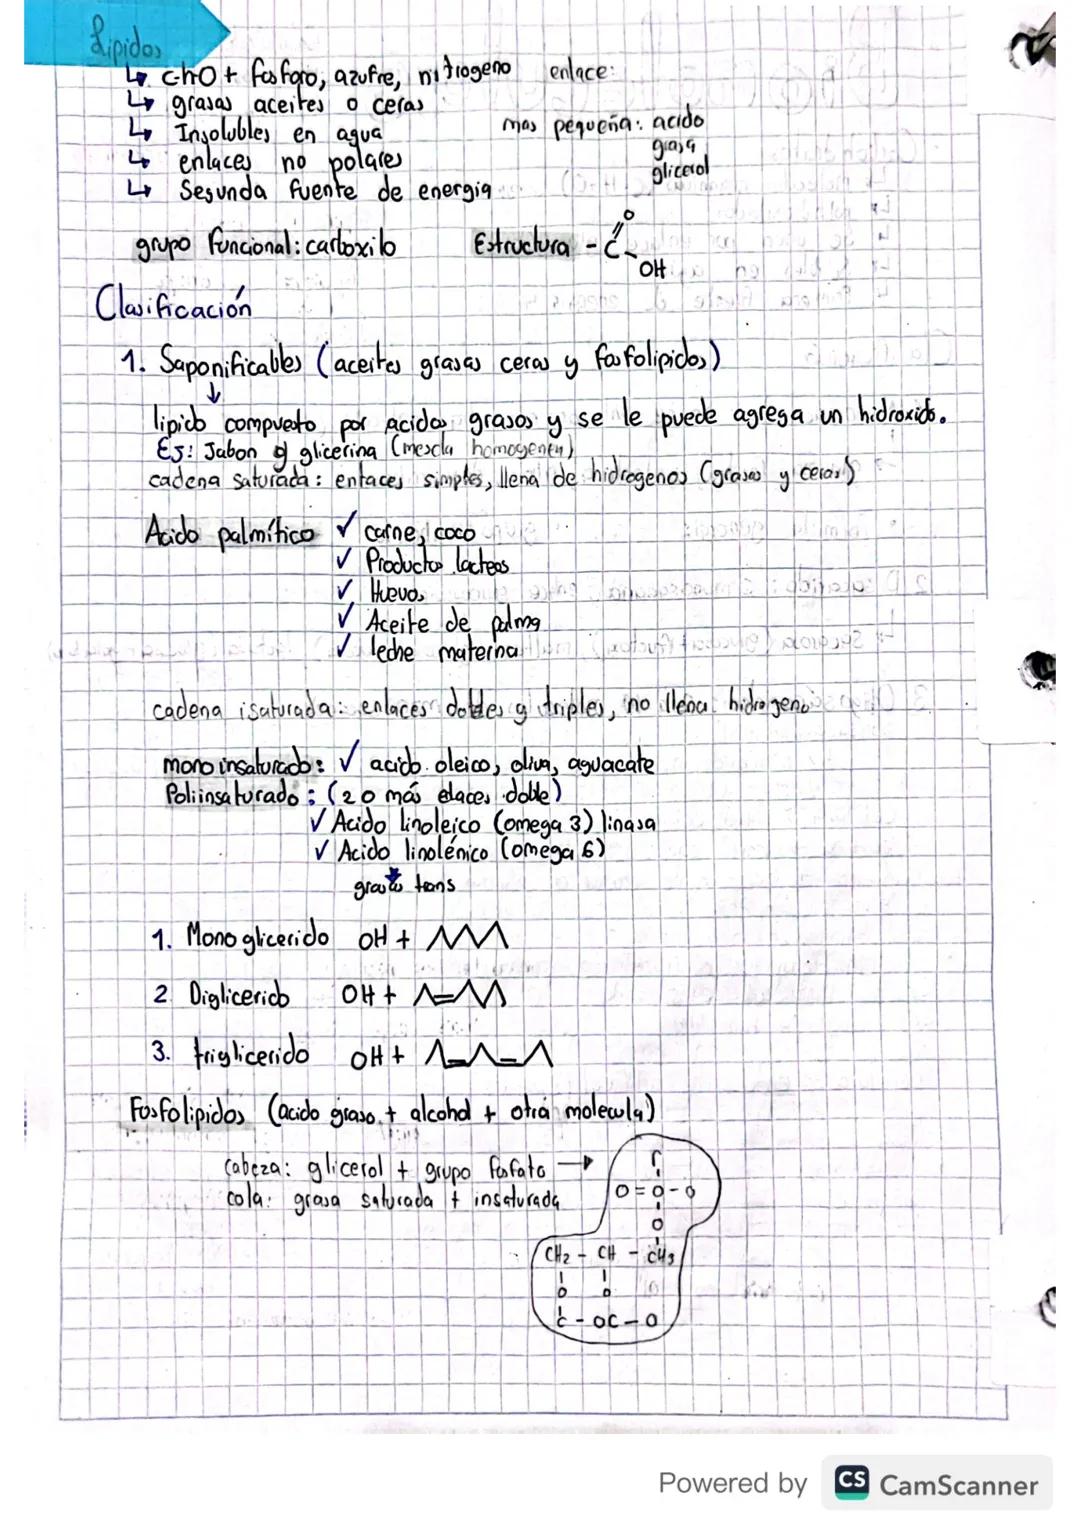 Lipidos
↳ ChO + fosforo, azufre, nitrogeno enlace:
↳ grasas aceites o ceras
↳ Insolubles en agua mas pequeña: acido
grasa
↳ enlaces no polares glicerol
↳ Segunda fuente de energia
grupo funcional: carboxilo Estructura - C
O
OH
Clasificación
1. Saponificables (aceites grasas ceras y fosfolipidos)
lipido compuesto por acidos grasos y se le puede agrega un hidroxido.
Ej: Jabon y glicerina (mezcla homogenea)
cadena saturada: enlaces simples, llena de hidrogenos (grasas y ceras)
Acido palmítico ✓ carne, coco
✓ Productos lacteos
✓ Huevos
✓ Aceite de palma
✓ leche materna
cadena isaturada: enlaces dobles y triples, no llena hidrogeno
mono insaturado: ✓ acido oleico, oliva, aguacate
Poliinsaturado: (2 o más elaces doble)
✓ Acido linoleico (omega 3) linasa
✓ Acido linolénico (omega 6)
grasas trans
1. Mono glicerido OH +
2. Diglicerido OH +
3. trigliecerido OH +
Fosfolipidos (acido graso + alcohol + otra molecula)
cabeza: glicerol + grupo fosfato →
cola: grasa saturada + insaturada
r
O = O - O
O
CH2 - CH - CH3
O O
C - OC - O
Powered by CS CamScanner